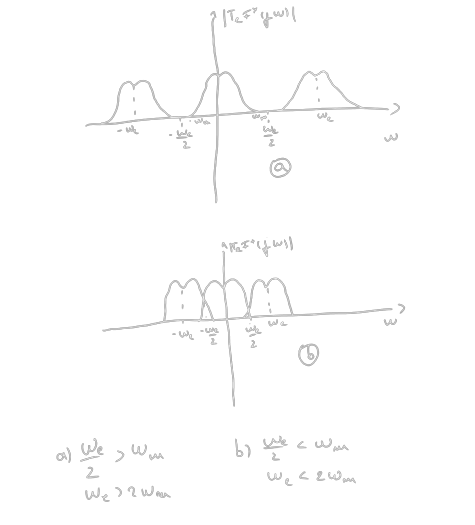 |T_e F*(jω)|
-ω_e -ω_e/2 -ω_m ω_m ω_e/2 ω_e ω
a
|T_e F*(jω)|
-ω_e -ω_e/2 ω_e/2 ω_e ω
b
a) ω_e/2 > ω_m b) ω_e/2 < ω_m
ω_e > 2ω_m ω_e < 2ω_m